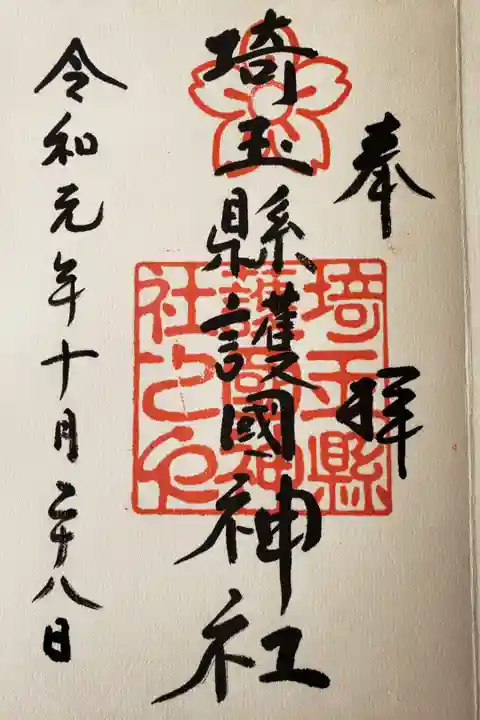 奉拜
埼玉縣護國神社
埼玉縣
護國神
社之印
令和元年十月二十八日